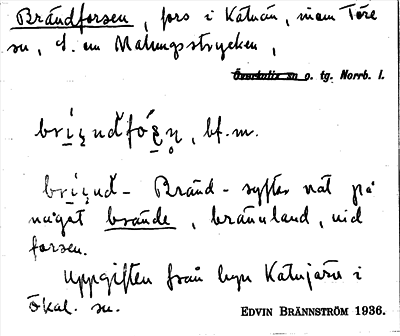 Brändforsen, fors i Kalixän, inom Töre
sn, s. om Malungsstrycken,
Överkalix sn o. tg. Norrb. l.
bf. m.
Bränd- syftar väl på
något brände, brännland, vid
forsen.
Uppgiften från byn Katujärv i
Ökal. sn. EDVIN BRÄNNSTRÖM 1936.